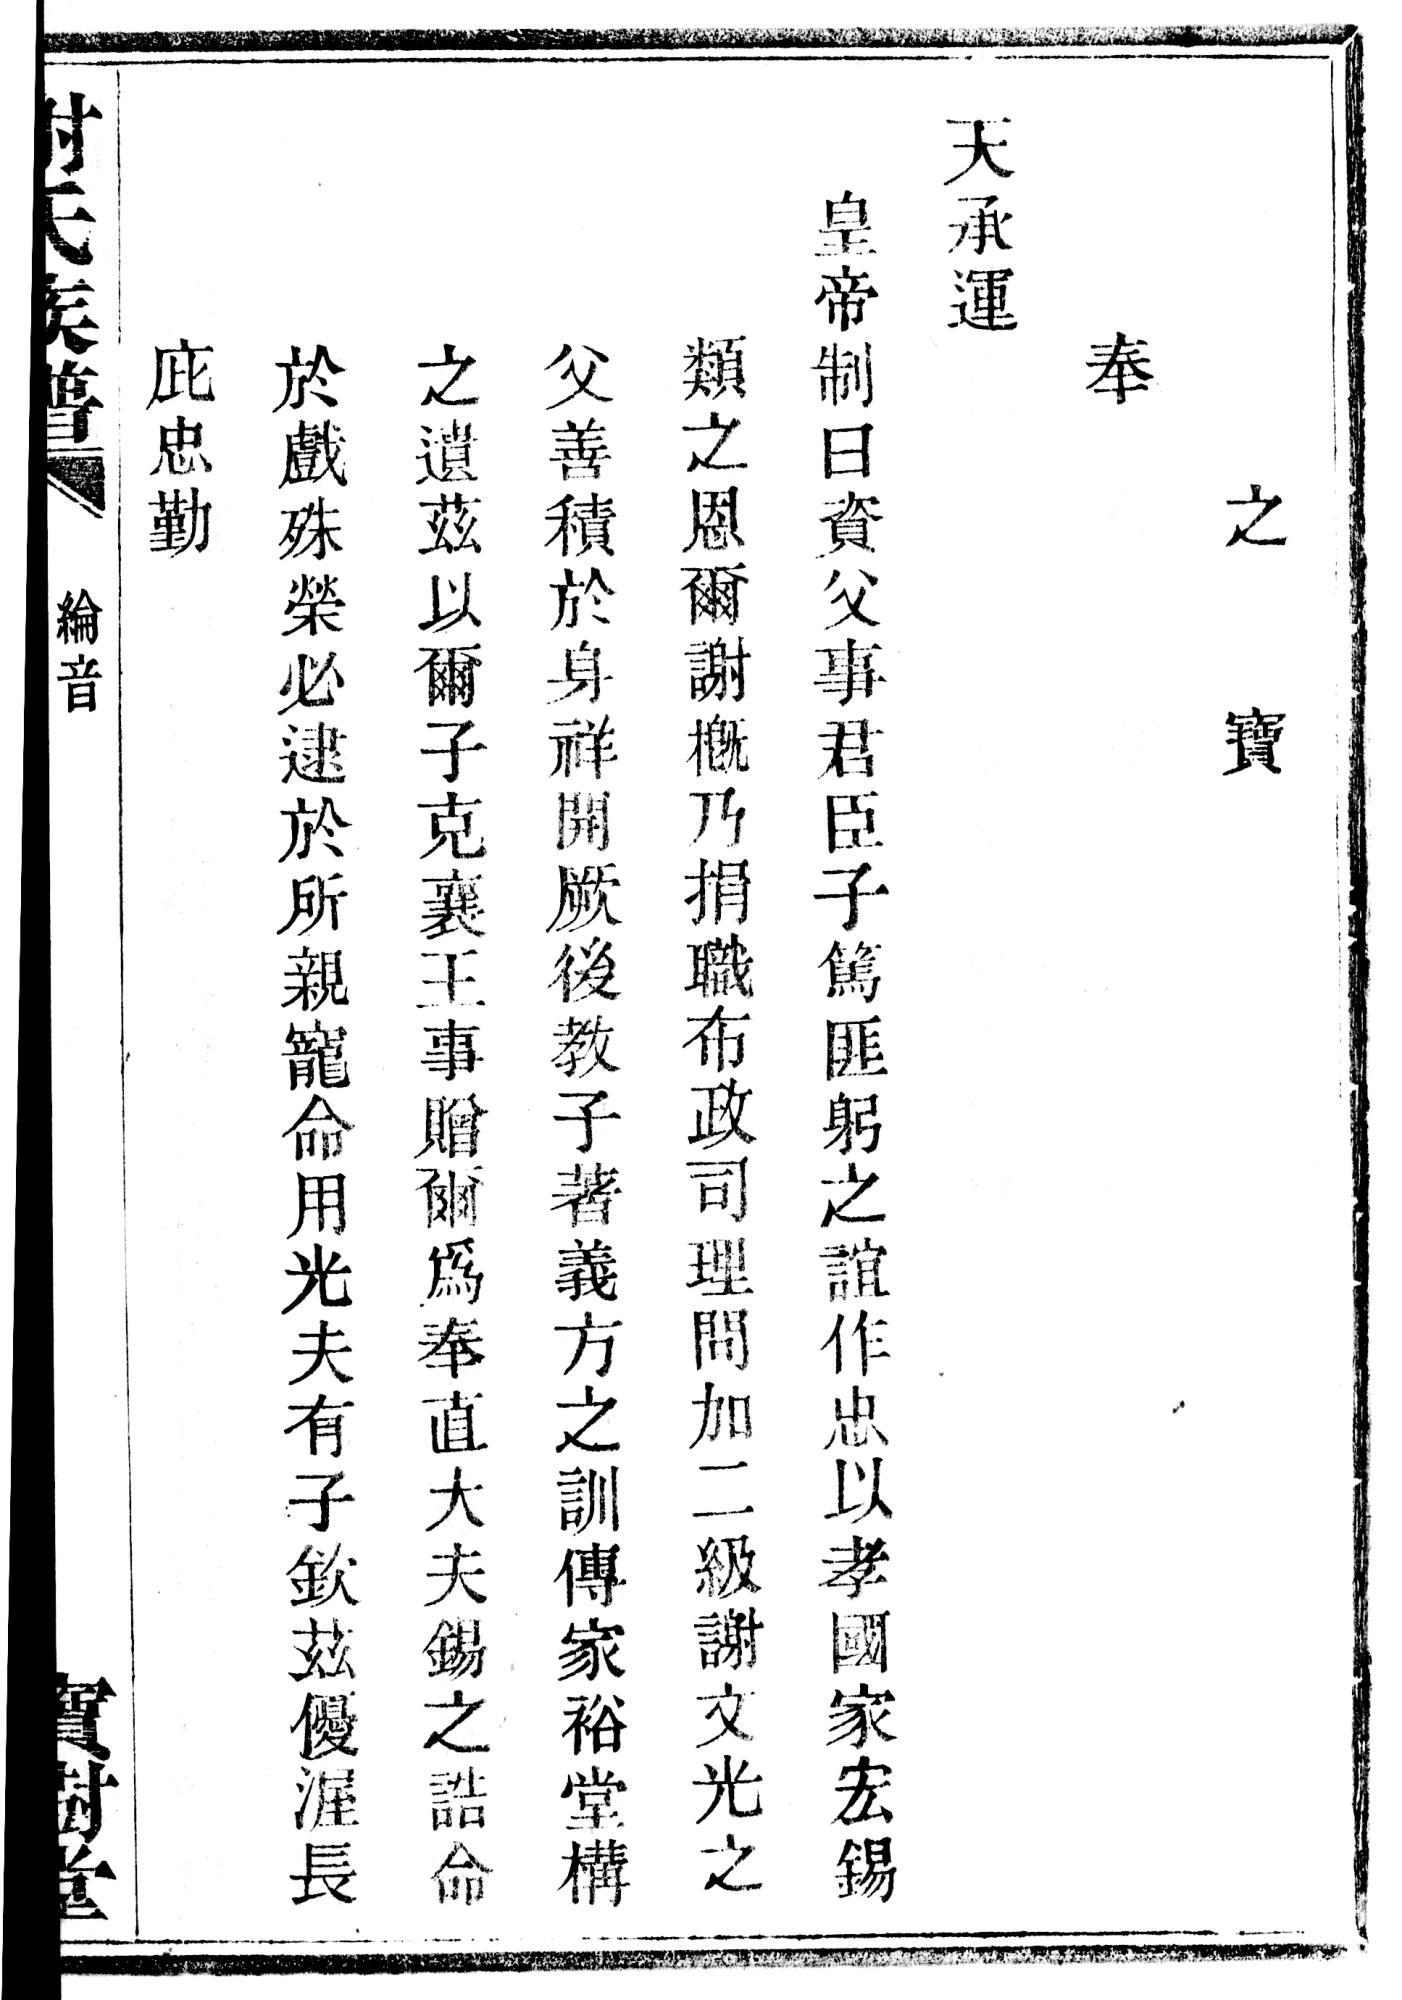 之寶
奉
天承運
皇帝制曰資父事君臣子篤匪躬之誼作忠以孝國家宏錫
類之恩爾謝概乃捐職布政司理問加二級謝文光之
父善積於身祥開厥後教子著義方之訓傳家裕堂構
之遺茲以爾子克襄王事贈爾爲奉直大夫錫之誥命
於戲殊榮必逮於所親寵命用光夫有子欽茲優渥長
庇忠勤
謝氏族譜
綸音
寶樹堂